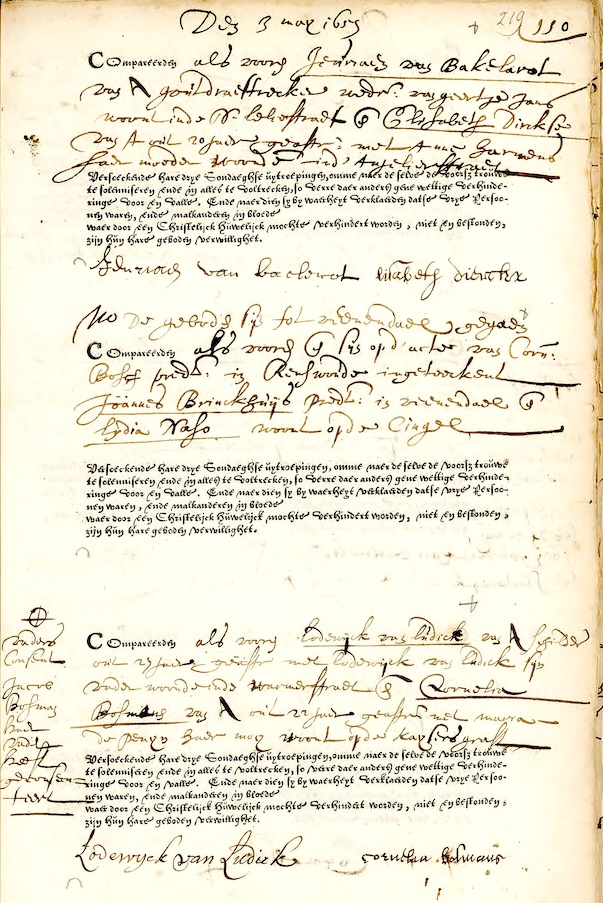 Den 3 may 1653
219 110
Compareerden als vooren Jeuriaen van Bakelarot
van A goutdraettrecker wedr: van geertje Jans
woont inde St. teliestraet & Elisabeth Dirckse
van A out 20 Jaer geasst: met Anne Harmens
haer moeder woonende ind' Angelierstraet
Versoeckende hare drye Sondaeghse uytroepingen, omme naer de selve de voorsz trouwe
te solemniseren ende in alles te voltrecken, so verre daer anders gene wettige verhinde-
ringe voor en valle. Ende naerdien sy by waerheyt verklaerden datse vrye Persoo-
nen waren, ende malkanderen in bloede
waer door een Christelijck Huwelijck mochte verhindert worden, niet en bestonden,
zijn hun hare geboden verwilliget.
Jeuriaen van baclerot lisabeth diercks
No De geboden sijn tot veenendael gegaen
Compareerden als vooren & sijn op d'acte van Corn:
Bosch predt: in Renswoude ingeteeckent
Joannes Brinckhuijs Predt: in veenendael &
Lydia Naso woont op de Cingel
Versoeckende hare drye Sondaeghse uytroepingen, omme naer de selve de voorsz trouwe
te solemniseren ende in alles te voltrecken, so verre daer anders gene wettige verhinde-
ringe voor en valle. Ende naerdien sy by waerheyt verklaerden datse vrye Persoo-
nen waren, ende malkanderen in bloede
waer door een Christelijck Huwelijck mochte verhindert worden, niet en bestonden,
zijn hun hare geboden verwilliget.
vaders
Consent
Jacob
Bosman
haer
vader
heeft
geconsen
teert
Compareerden als vooren Lodewijck van Ludick van A schilder
out 23 Jaer geasst met Lodewijck van Ludick sijn
vader woonende inde warmerstraet & Cornelia
Bosmans van A out 22 Jaer geasst met maria
de Penyn haer moer woont op de kaysersgraft
Versoeckende hare drye Sondaeghse uytroepingen, omme naer de selve de voorsz trouwe
te solemniseren ende in alles te voltrecken, so verre daer anders gene wettige verhinde-
ringe voor en valle. Ende naerdien sy by waerheyt verklaerden datse vrye Persoo-
nen waren, ende malkanderen in bloede
waer door een Christelijck Huwelijck mochte verhindert worden, niet en bestonden,
zijn hun hare geboden verwilliget.
Lodewijck van Ludick cornelia bosmans